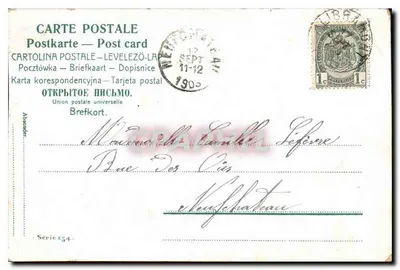 CARTE POSTALE
Postkarte — Post card
CARTOLINA POSTALE – LEVELEZŐ-LAP
Pocztówka – Briefkaart – Dopisnice
Karta korespondencyjna – Tarjeta postal
ОТКРЫТОЕ ПИСЬМО.
Union postale universelle
Brefkort.
Absender.
NEUFCHATEAU
12
SEPT
11-12
1905
1 1
Mademoiselle Camille Lefèvre
Rue des Oies
Neufchateau
Serie 134